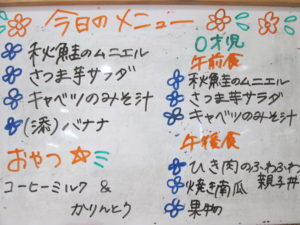 今日のメニュー
秋鮭のムニエル
さつま芋サラダ
キャベツのみそ汁
(添)バナナ
おやつ
コーヒーミルク &
かりんとう
0才児
午前食
秋鮭のムニエル
さつま芋サラダ
キャベツのみそ汁
午後食
ひき肉のふわふわ
親子丼
焼き南瓜
果物